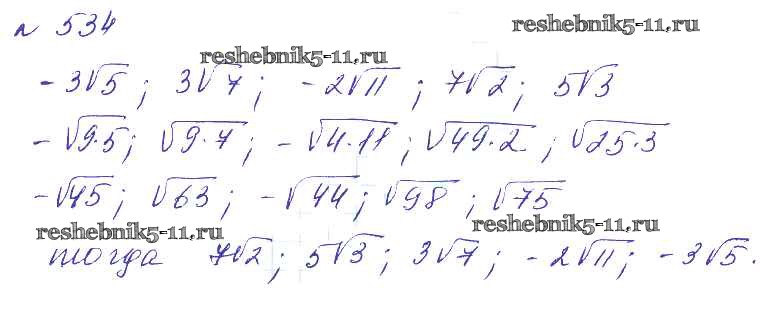 № 534
reshebnik5-11.ru
reshebnik5-11.ru
-3√5; 3√7; -2√11; 7√2; 5√3
-√9·5; √9·7; -√4·11; √49·2; √25·3
-√45; √63; -√44; √98; √75
reshebnik5-11.ru
reshebnik5-11.ru
тогда 7√2; 5√3; 3√7; -2√11; -3√5.